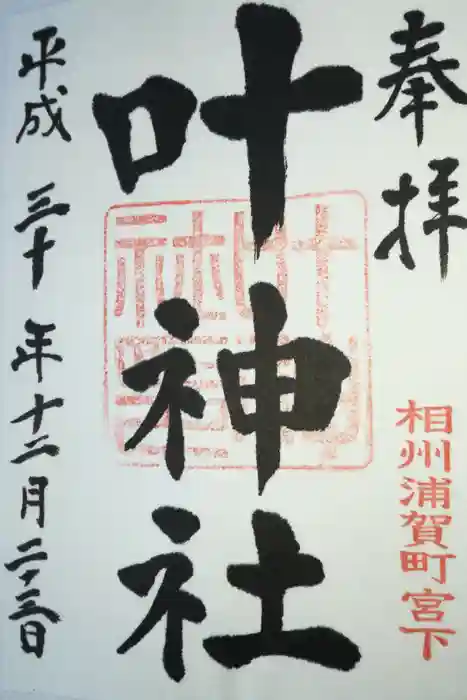 奉拝
相州浦賀町宮下
叶神社
平成三十年十二月二三日